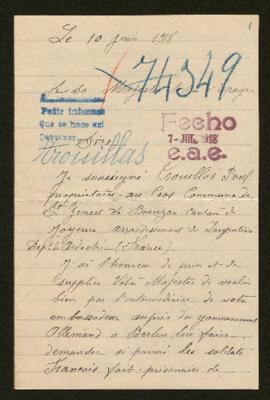 Le 10 Juin 1918
74349
Sa Majesté
Pedir informes
Que se hace en
Devolver
Sire
Fecho
7-JUL.1918
e.a.e.
trouillas
Je soussigné Trouillas
propriétaire aux Commune de
St Genest de Beauzon Canton de
Joyeuse arrondissement de Largentière
Dept de l'Ardèche (France)
J'ai l'honneur de prier et de
supplier Votre Majesté de vouloir
bien par l'intermédiaire de votre
ambassadeur auprès du gouvernement
Allemand à Berlin lui faire
demander si parmi les soldats
Français fait prisonnier de